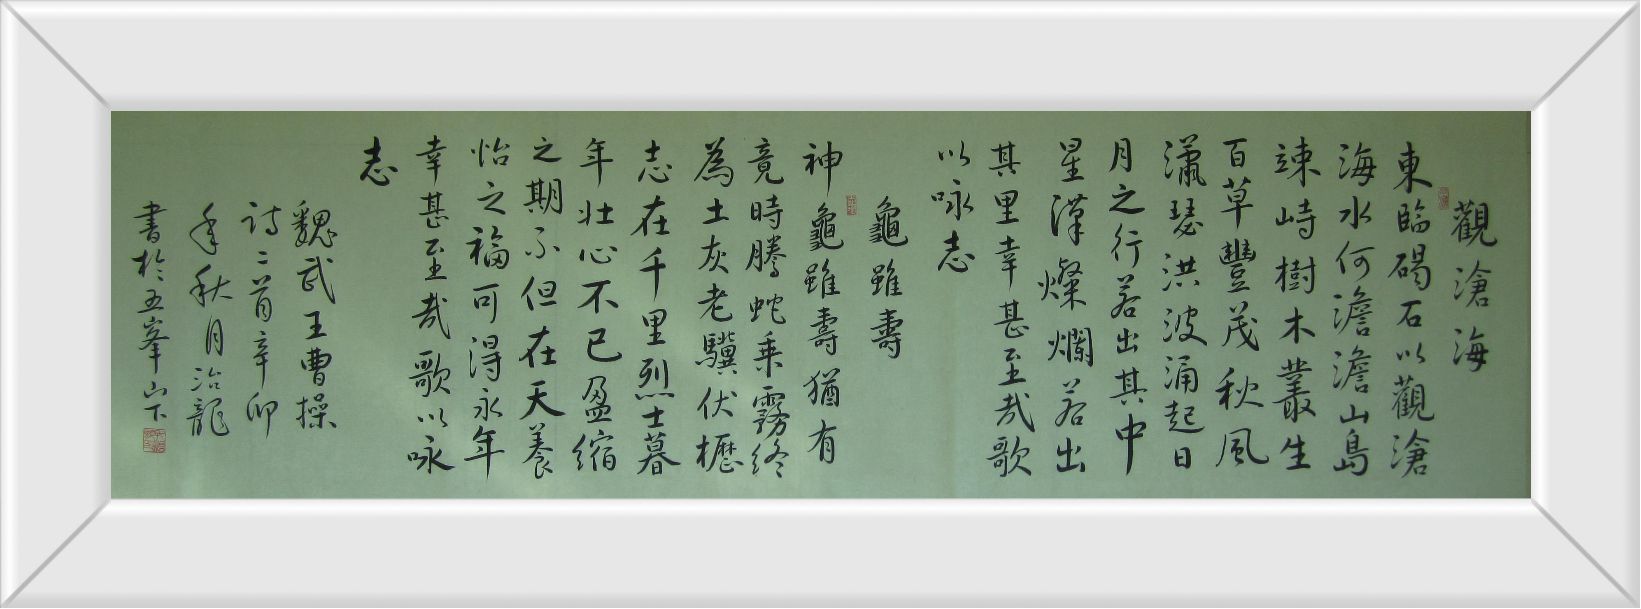 觀滄海
東臨碣石以觀滄
海水何澹澹山島
竦峙樹木叢生
百草豐茂秋風
瀟瑟洪波涌起日
月之行若出其中
星漢燦爛若出
其里幸甚至哉歌
以咏志
龜雖壽
神龜雖壽猶有
竟時騰蛇乘霧終
為土灰老驥伏櫪
志在千里烈士暮
年壯心不已盈缩
之期不但在天養
怡之福可得永年
幸甚至哉歌以咏
志
魏武王曹操
詩二首辛卯
年秋月治龍
書於五峯山下